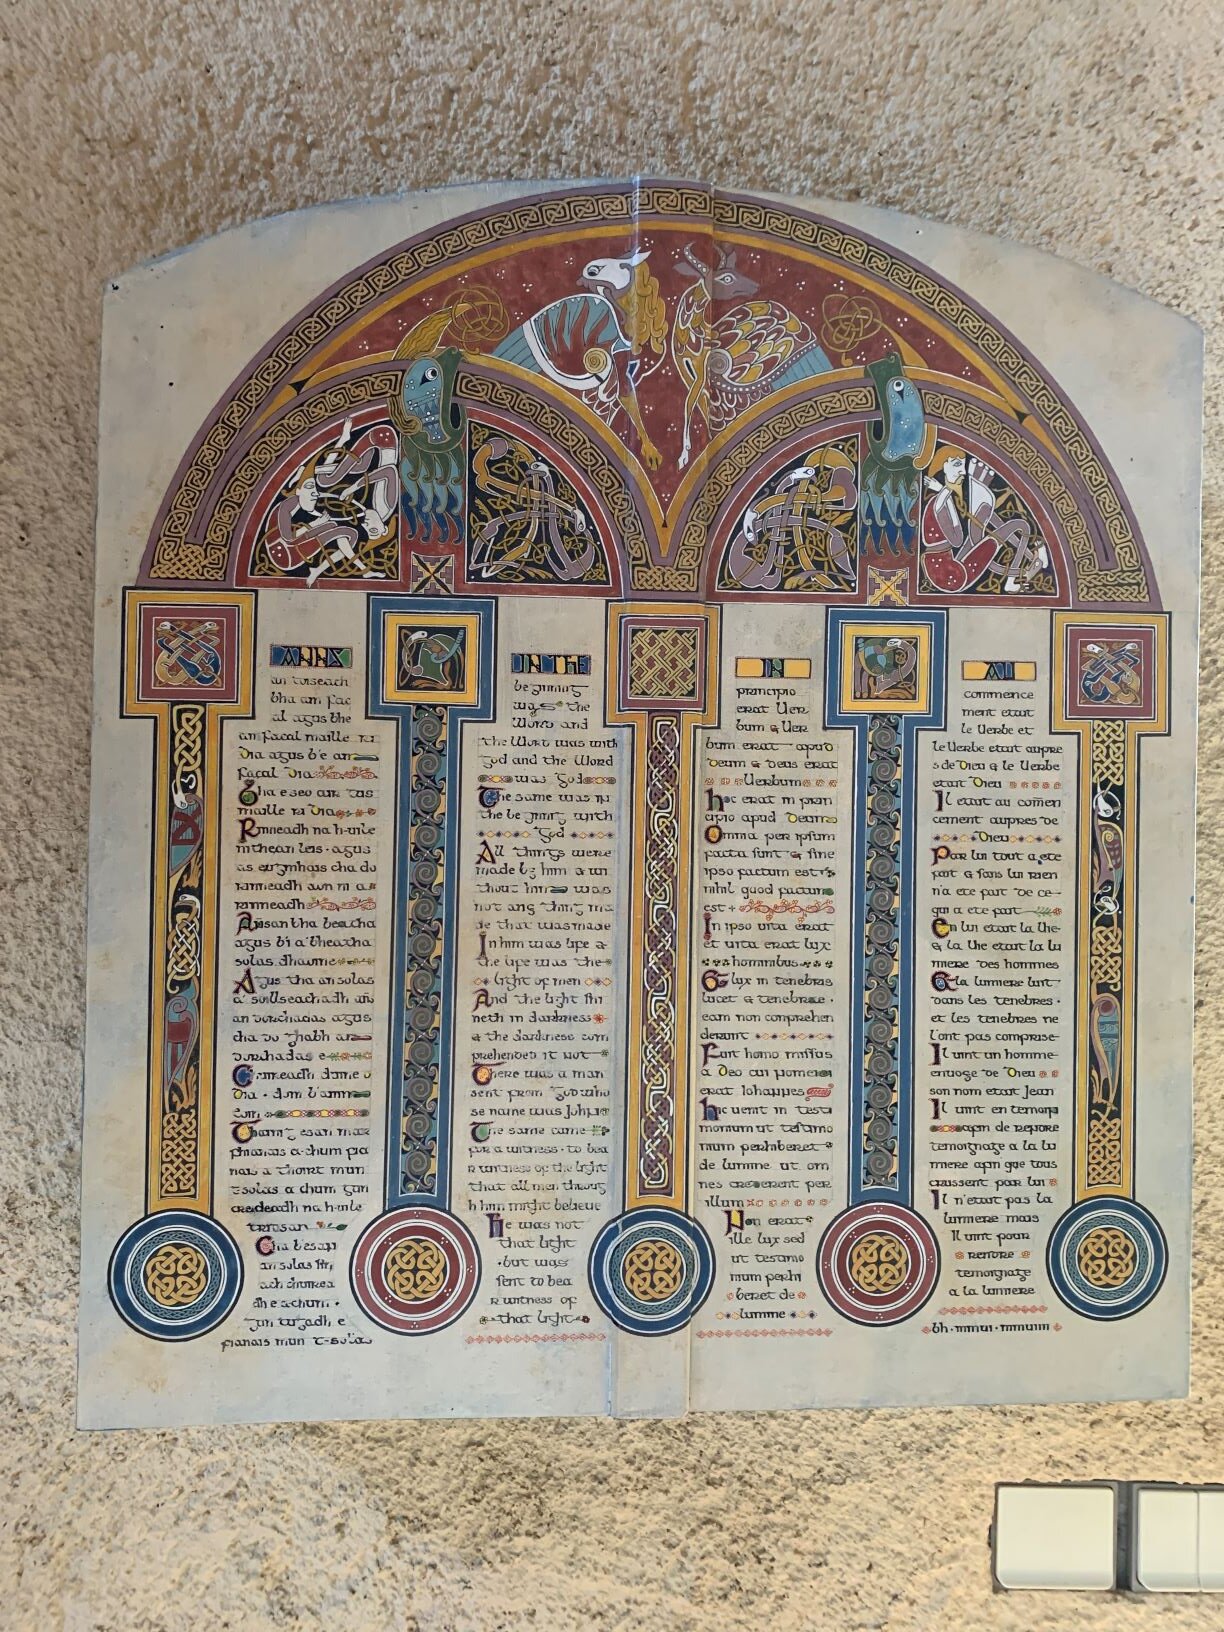 ANNS
an toiseach
bha am fac
al agus bha
am facal maille ri
Dia agus b'e an
facal Dia
Bha e seo air tus
maille ri Dia
Rinneadh na h-uile
nithean leis · agus
as eugmhais cha do
rinneadh aon ni a
rinneadh
Annsan bha beatha
agus b'i a' bheatha
solas dhaoine
Agus tha an solas
a' soillseachadh ann
an dorchadas agus
cha do ghabh an
dorchadas e
Dia · d'am b'ainm
Eoin
Thainig esan mar
fhianais a-chum fia
nais a thoirt mun
t-solas a chum gun
creideadh na h-uile
tridsan
Cha b'esan
an solas
ach
dh e a-chum ·
gun tugadh e
fianais mun t-solas
IN THE
beginning
was the
Word and
the Word was with
God and the Word
was God
The same was in
the beginning with
God
All things were
made by him & wi
thout him was
not any thing ma
de that was made
In him was life &
the life was the
light of men
And the light shi
neth in darkness
& the darkness com
prehended it not
There was a man
sent from God who
se name was John
The same came
for a witness · to bea
r witness of the light
that all men throug
h him might believe
He was not
that light
· but was
sent to bea
r witness of
that light
IN
principio
erat Uer
bum & Uer
bum erat apud
deum & deus erat
Uerbum
hoc erat in prin
cipio apud Deum
Omnia per ipsum
facta sunt & sine
ipso factum est
nihil quod factum
est
In ipso uita erat
et uita erat lux
hominibus
& lux in tenebris
lucet & tenebrae ·
eam non comprehen
derunt
Fuit homo missus
a deo cui nomen
erat Iohannes
hic uenit in testi
monium ut testimo
nium perhiberet
de lumine ut om
nes crederent per
illum
Non erat
ille lux sed
ut testimo
nium perhi
beret de
lumine
AU
commence
ment etait
le Uerbe et
le Uerbe etait aupre
s de Dieu & le Uerbe
etait Dieu
Il etait au comen
cement aupres de
Dieu
Par lui tout a ete
fait & sans lui rien
n'a ete fait de ce
qui a ete fait
En lui etait la Uie
& la Uie etait la lu
miere des hommes
& la lumiere luit
dans les tenebres ·
et les tenebres ne
l'ont pas comprise
Il uint un homme
enuoye de Dieu
son nom etait Jean
Il uint en temoin
afin de rendre
temoignage a la lu
miere afin que tous
crussent par lui
Il n'etait pas la
lumiere mais
Il uint pour
rendre
temoignage
a la lumiere